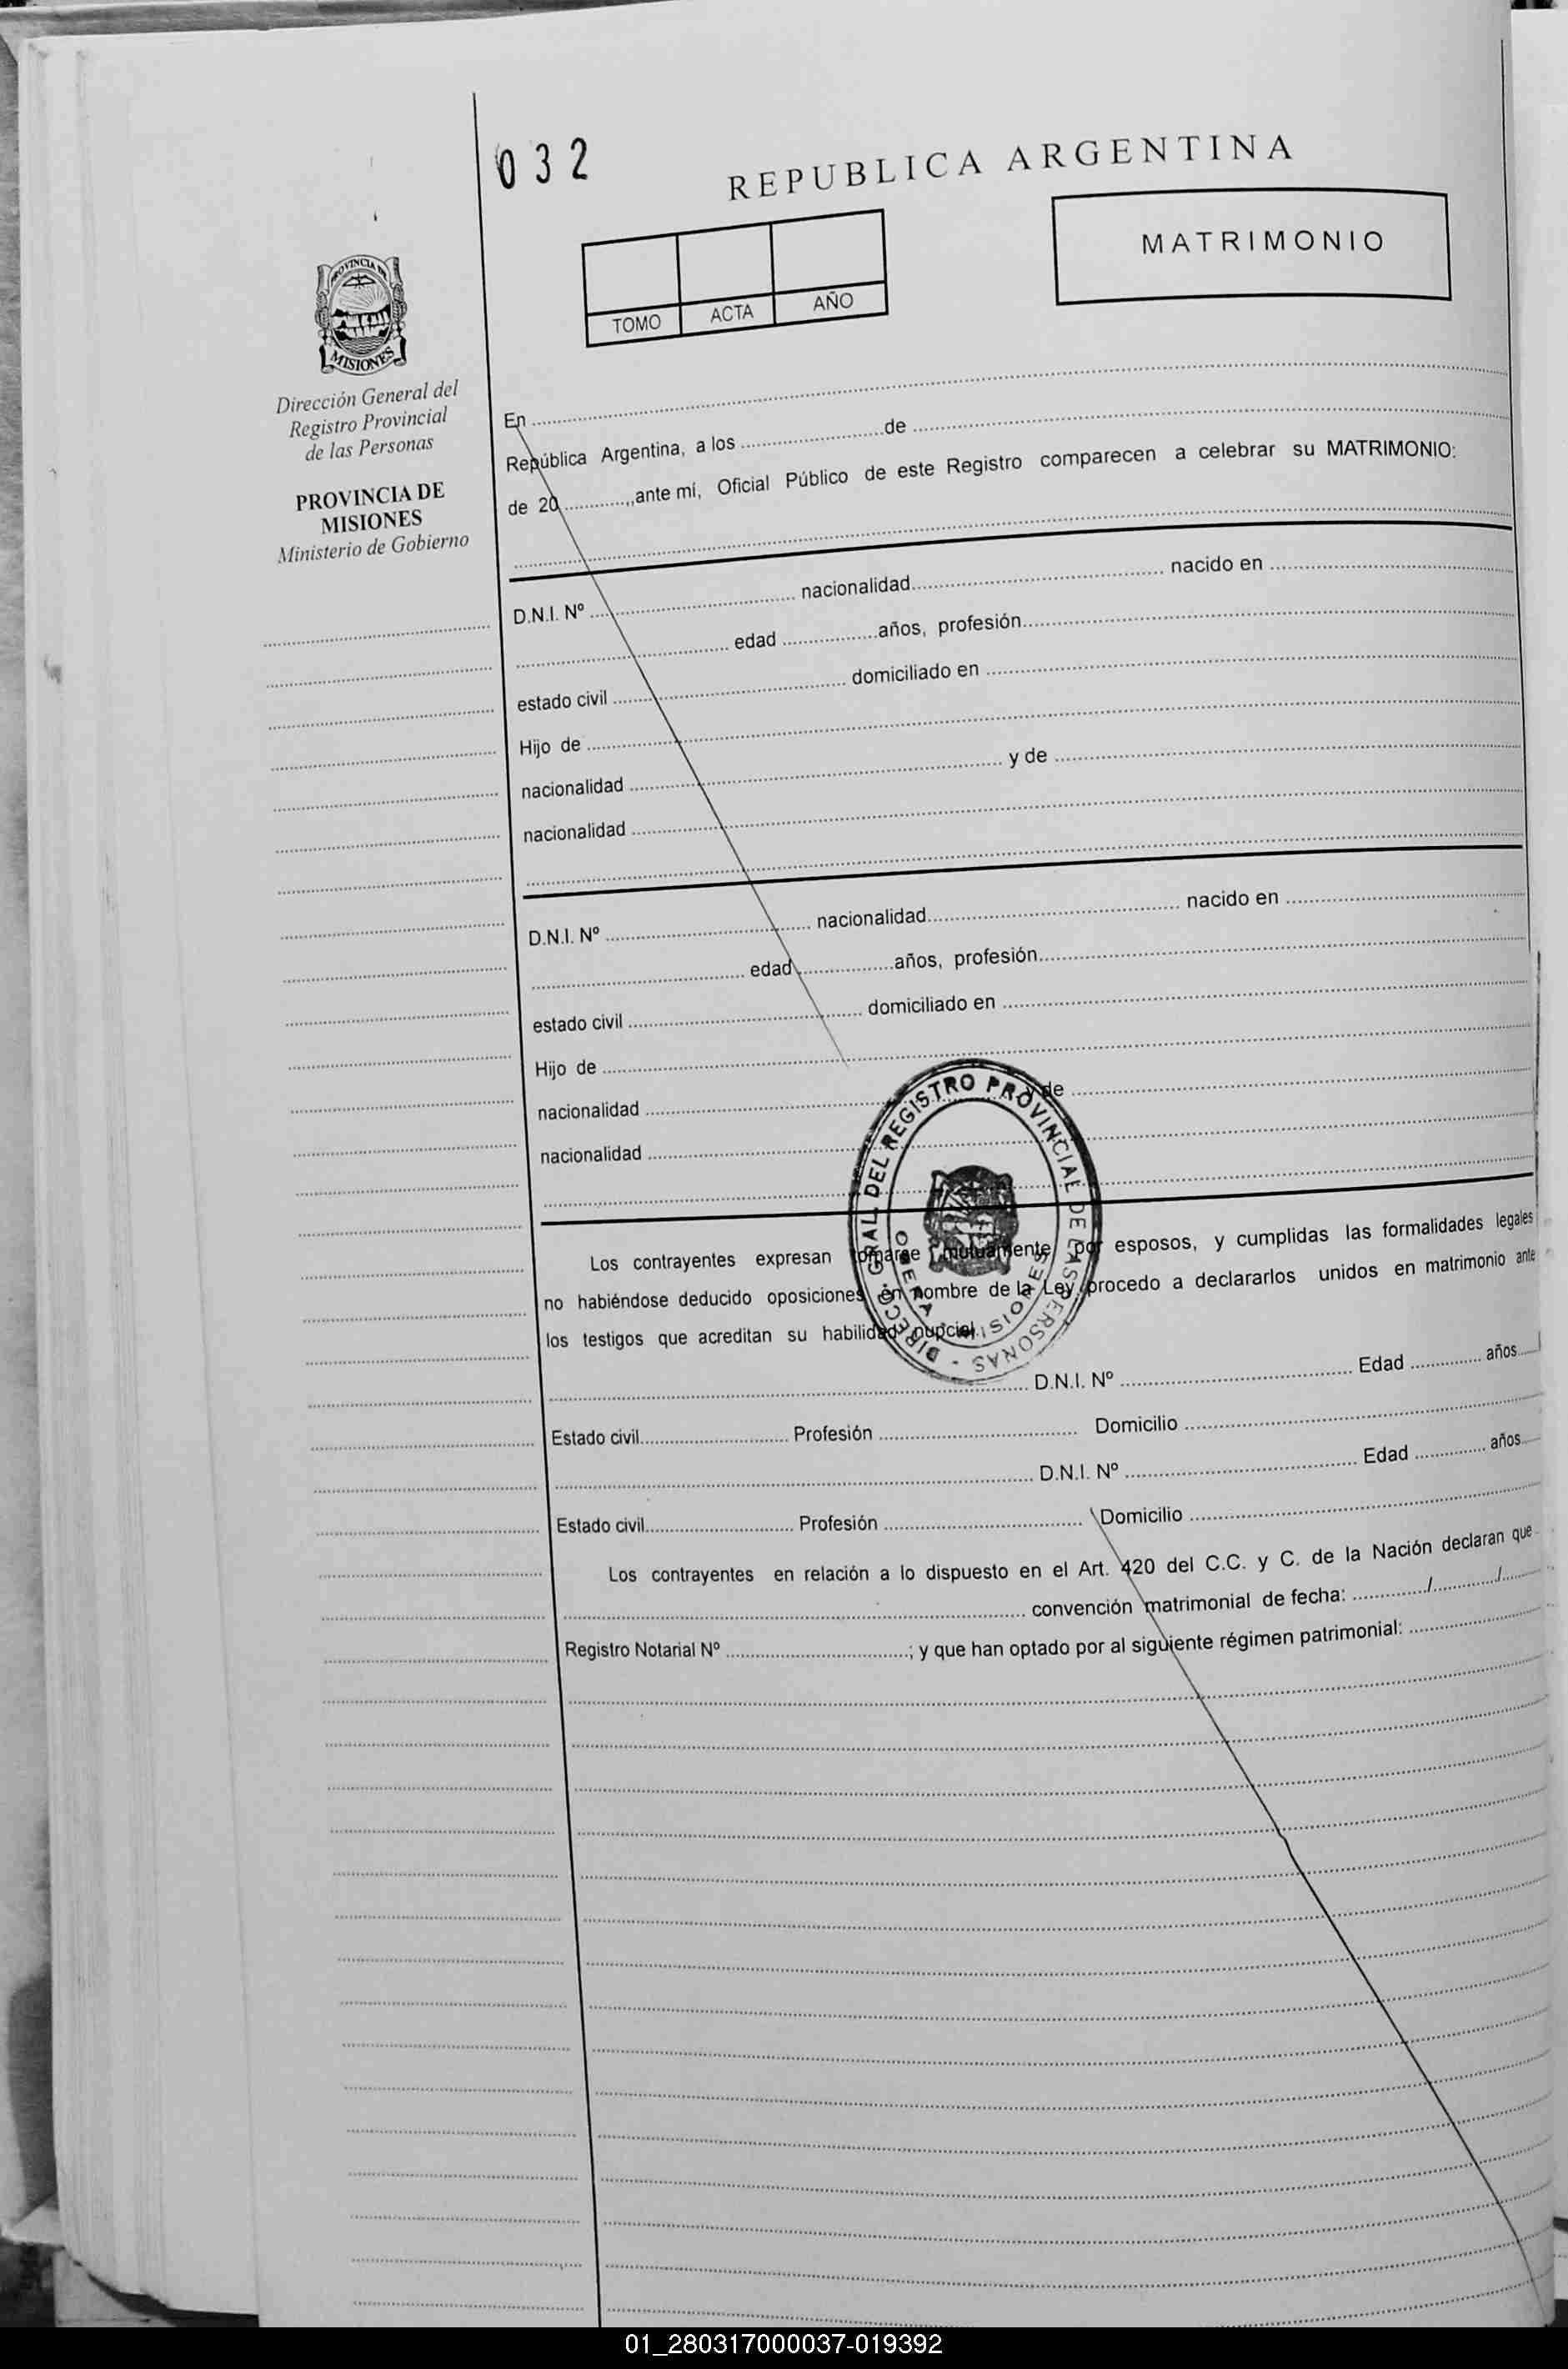 032
REPUBLICA ARGENTINA
MATRIMONIO
TOMO ACTA AÑO
PROVINCIA DE
MISIONES
Dirección General del
Registro Provincial
de las Personas
PROVINCIA DE
MISIONES
Ministerio de Gobierno
En
República Argentina, a los de
de 20 ,,ante mí, Oficial Público de este Registro comparecen a celebrar su MATRIMONIO:
D.N.I. Nº nacionalidad nacido en
edad años, profesión
estado civil domiciliado en
Hijo de
nacionalidad y de
nacionalidad
D.N.I. Nº nacionalidad nacido en
edad años, profesión
estado civil domiciliado en
Hijo de
nacionalidad y de
nacionalidad
DIRECC. GRAL. DEL REGISTRO PROVINCIAL DE LAS PERSONAS -
OBERA - MISIONES
Los contrayentes expresan tomarse mutuamente por esposos, y cumplidas las formalidades legales
no habiéndose deducido oposiciones en nombre de la Ley procedo a declararlos unidos en matrimonio ante
los testigos que acreditan su habilidad nupcial.
D.N.I. Nº Edad años
Estado civil Profesión Domicilio
D.N.I. Nº Edad años
Estado civil Profesión Domicilio
Los contrayentes en relación a lo dispuesto en el Art. 420 del C.C. y C. de la Nación declaran que
convención matrimonial de fecha: / /
Registro Notarial Nº ; y que han optado por al siguiente régimen patrimonial:
01_280317000037-019392